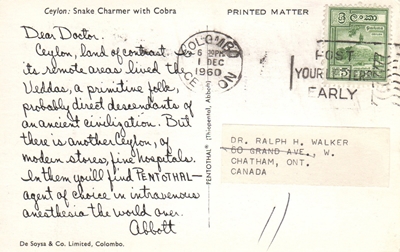 Ceylon: Snake Charmer with Cobra
PRINTED MATTER
Dear Doctor.
Ceylon, land of contrast. In
its remote areas lived the
Veddas, a primitive folk,
probably direct descendants of
an ancient civilization. But
there is another Ceylon, of
modern stores, fine hospitals.
In them you'll find PENTOTHAL—
agent of choice in intravenous
anesthesia the world over.
Abbott
De Soysa & Co. Limited, Colombo.
PENTOTHAL® (Thiopental, Abbott)
COLOMBO
1 DEC
1960
CEYLON
POST
YOUR
EARLY
ශ්‍රී ලංකා
DR. RALPH H. WALKER
60 GRAND AVE., W.
CHATHAM, ONT.
CANADA